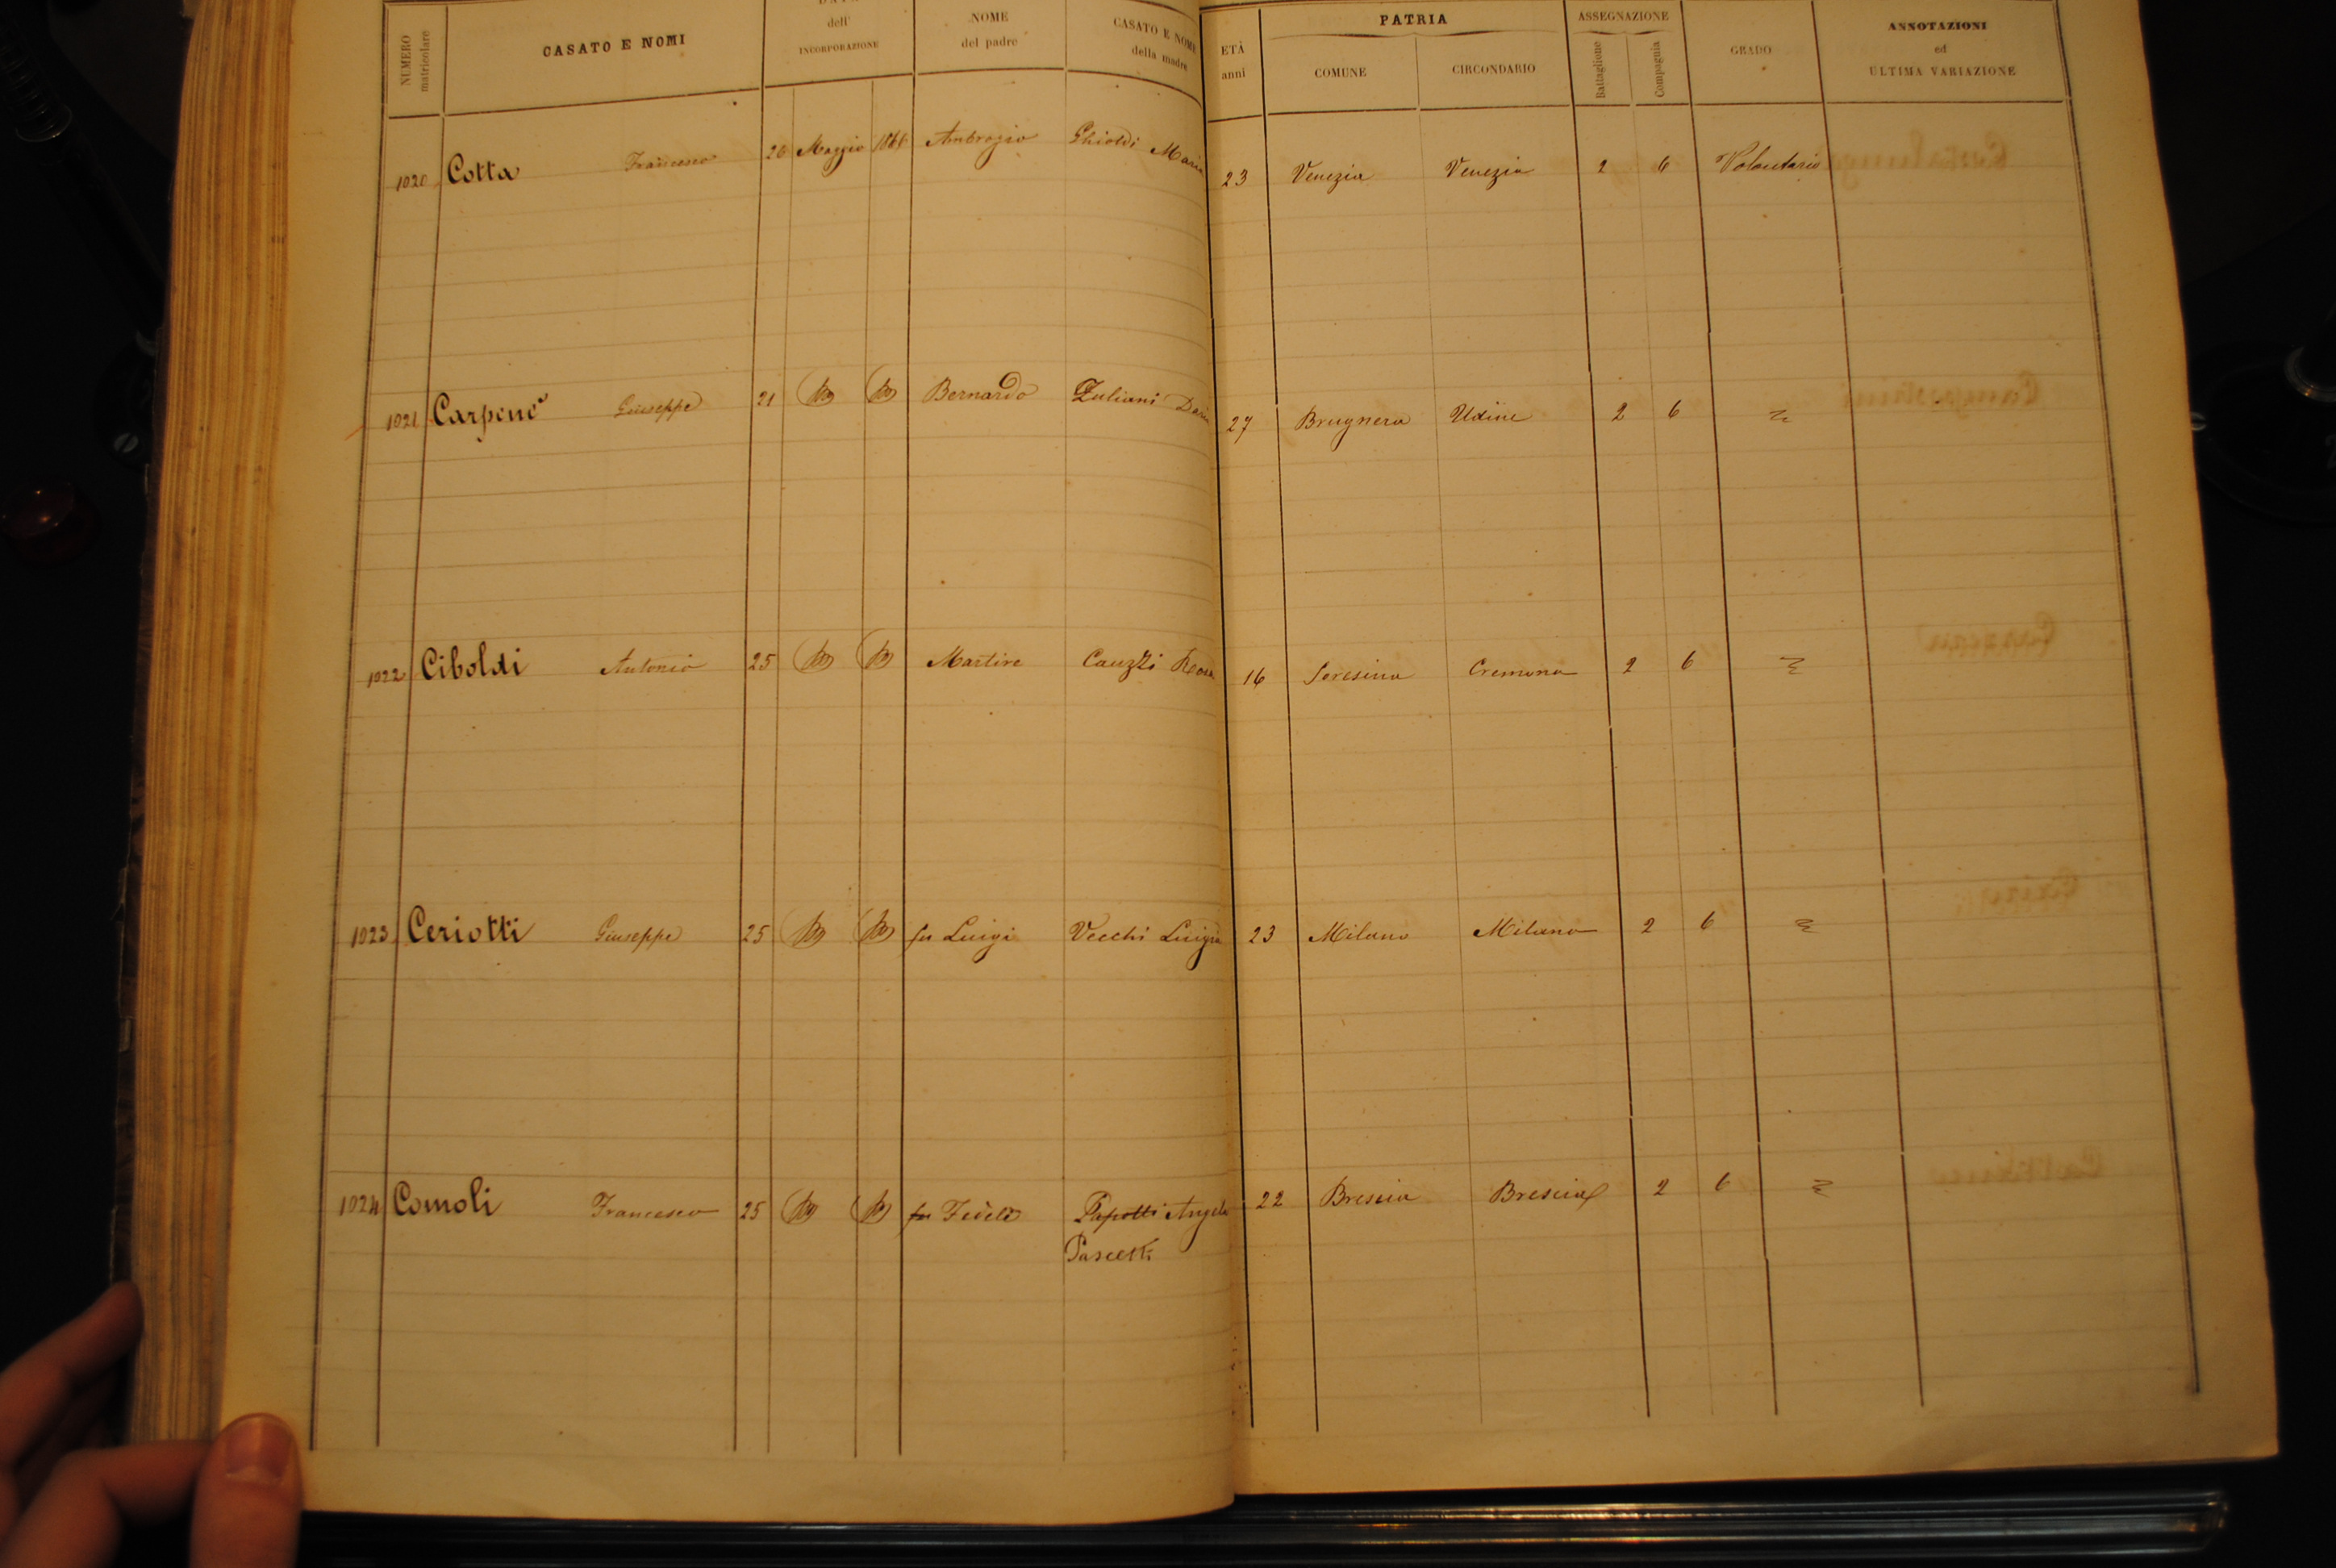 NUMERO matricolare CASATO E NOMI DATA dell' INCORPORAZIONE NOME del padre CASATO E NOME della madre ETÀ anni PATRIA COMUNE CIRCONDARIO ASSEGNAZIONE Battaglione Compagnia GRADO ANNOTAZIONI ed ULTIMA VARIAZIONE
1020 Cotta Francesco 20 Maggio Ambrogio Ghioldi Maria 23 Venezia Venezia 2 6 Volontario
1021 Carpenè Giuseppe 21 Bernardo Zuliani 27 Brugnera Udine 2 6
1022 Ciboldi Antonio 25 Martire Cauzzi Rosa 16 Soresina Cremona 2 6
1023 Ceriotti Giuseppe 25 fu Luigi Vecchi Luigia 23 Milano Milano 2 6
1024 Comoli Francesco 25 fu Fedele Papotti Angela 22 Brescia Brescia 2 6
Pascetti